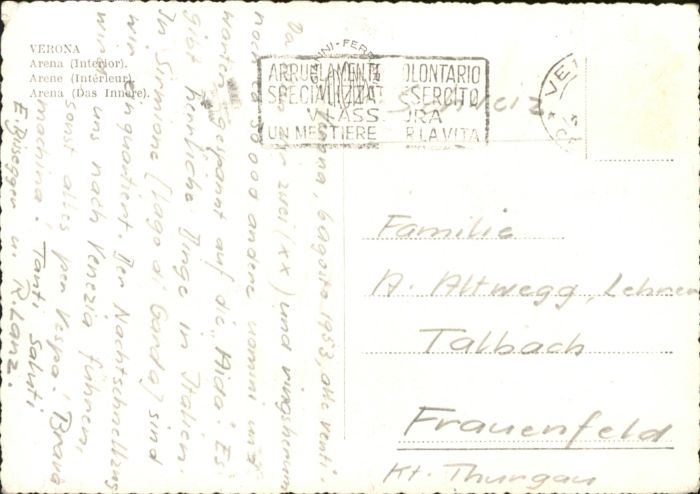 VERONA
Arena (Interior).
Arene (Intérieur).
Arena (Das Innere).
ARRUOLAMENTO VOLONTARIO
SPECIALIZZATI ESERCITO
VI ASSICURA
UN MESTIERE PER LA VITA
Schweiz
Verona, 6 agosto 1953, alle venti
Da zwei (xx) und ringsherum
noch 30'000 andere uomini und
warten gespannt auf die Aida! Es
gibt herrliche Dinge in Italien.
In Sirmione (Lago di Garda) sind
wir einquartiert. Der Nachtschnellzug
wird uns nach Venezia führen,
sonst alles per Vespa! Brava
machina! Tanti saluti
E. Büsegger u. R. Lanz.
Familie
A. Altwegg, Lehrer
Talbach
Frauenfeld
Kt. Thurgau